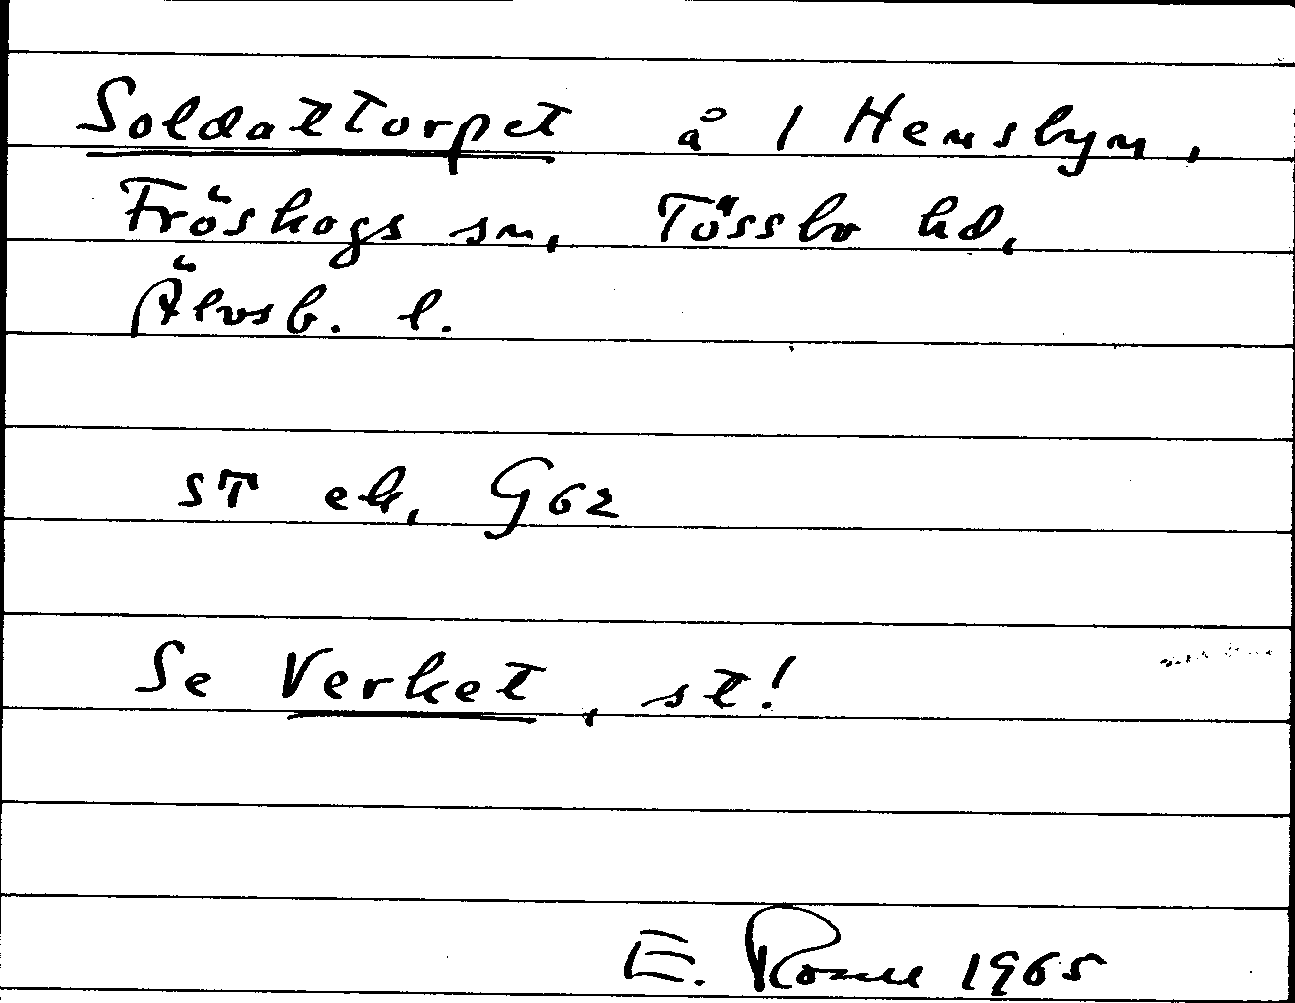 Soldattorpet å 1 Hensbyn,
Fröskogs sn, Tössbo hd,
Älvsb. l.
st ek, G62
Se Verket, st!
E. 1965